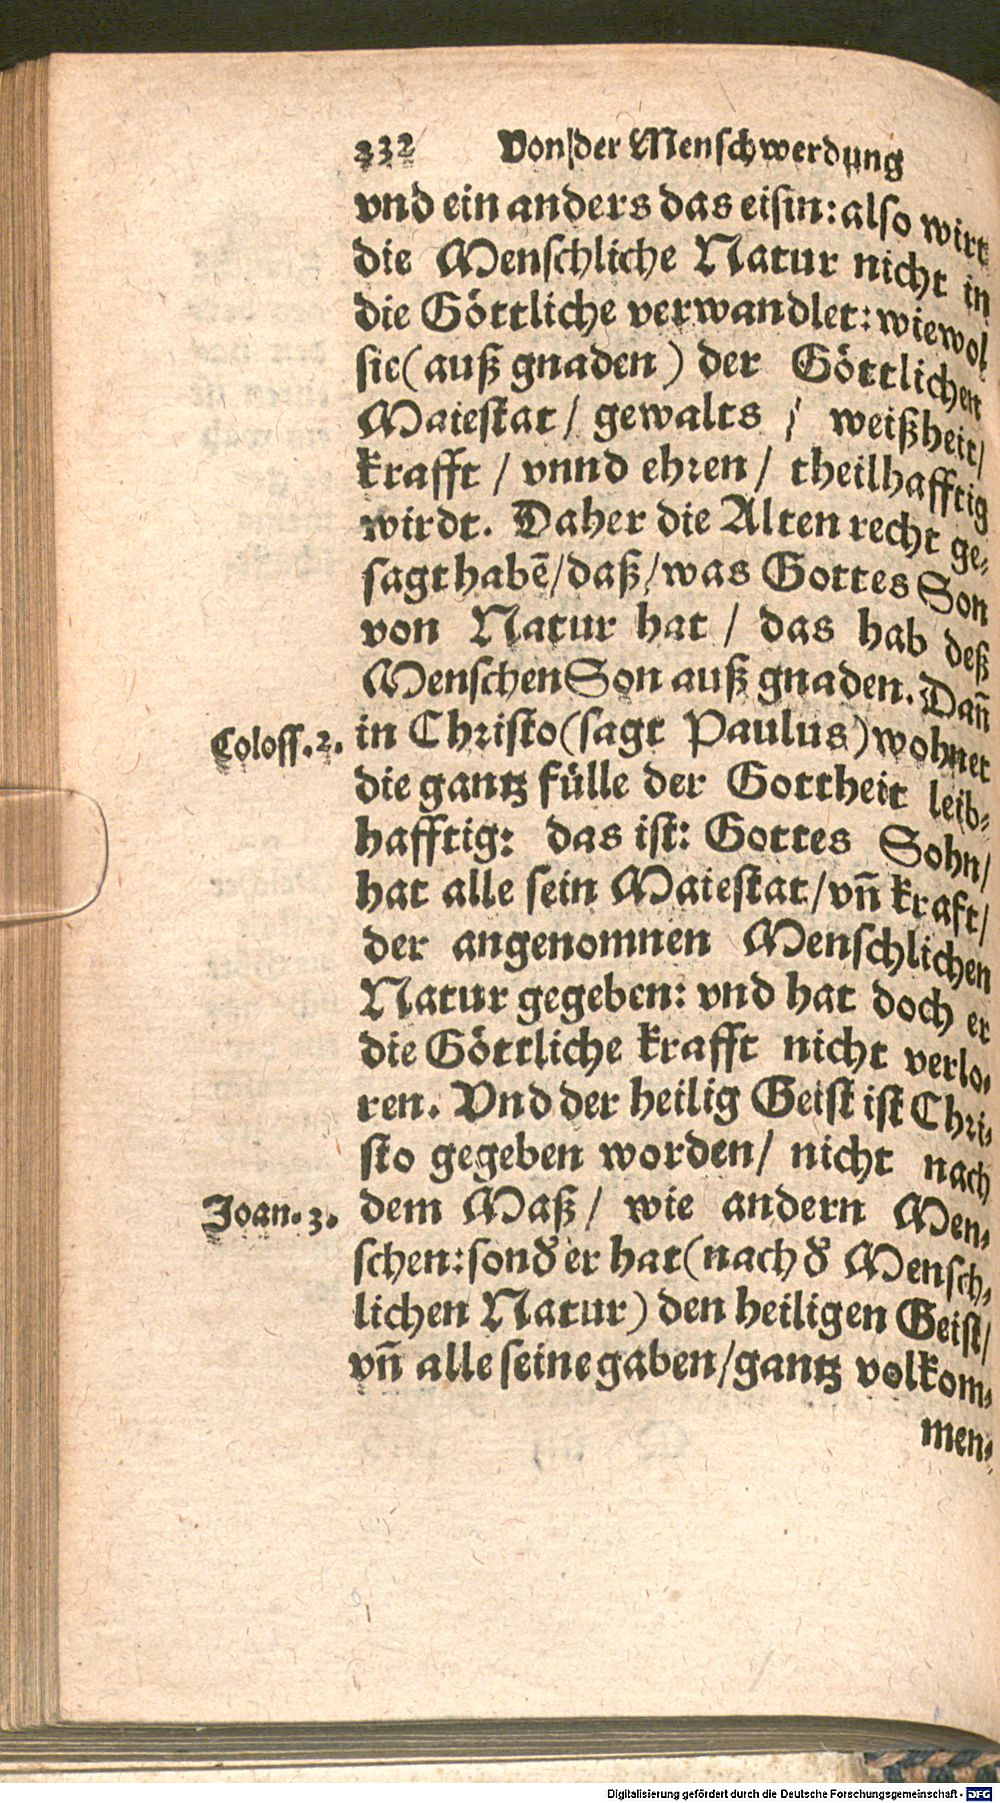 332 Von der Menschwerdung
vnd ein anders das eisin: also wirt
die Menschliche Natur nicht in
die Göttliche verwandlet: wiewol
sie (auß gnaden) der Göttlichen
Maiestat / gewalts / weißheit /
krafft / vnnd ehren / theilhafftig
wirdt. Daher die Alten recht ge-
sagt habē / daß / was Gottes Son
von Natur hat / das hab deß
Menschen Son auß gnaden. Dañ
Coloss. 2. in Christo (sagt Paulus) wohnet
die gantz fülle der Gottheit leib-
hafftig: das ist: Gottes Sohn /
hat alle sein Maiestat / vñ kraft /
der angenomnen Menschlichen
Natur gegeben: vnd hat doch er
die Göttliche krafft nicht verlo-
ren. Vnd der heilig Geist ist Chri-
sto gegeben worden / nicht nach
Joan. 3. dem Maß / wie andern Men-
schen: sond' er hat (nach d' Mensch-
lichen Natur) den heiligen Geist /
vñ alle seine gaben / gantz volkom-
men-
Digitalisierung gefördert durch die Deutsche Forschungsgemeinschaft - DFG